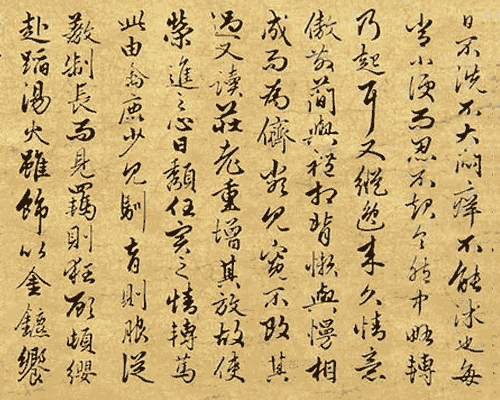 日不洗不大悶痒不能沐也每
常小便而忍不起令胞中略轉
乃起耳又縱逸来久情意
傲散簡與禮相背懶與慢相
成而為儕類見寬不攻其
過又讀莊老重增其放故使
榮進之心日頹任實之情轉篤
此由禽鹿少見馴育則服從
教制長而見羈則狂顧頓纓
赴蹈湯火雖飾以金鑣饗